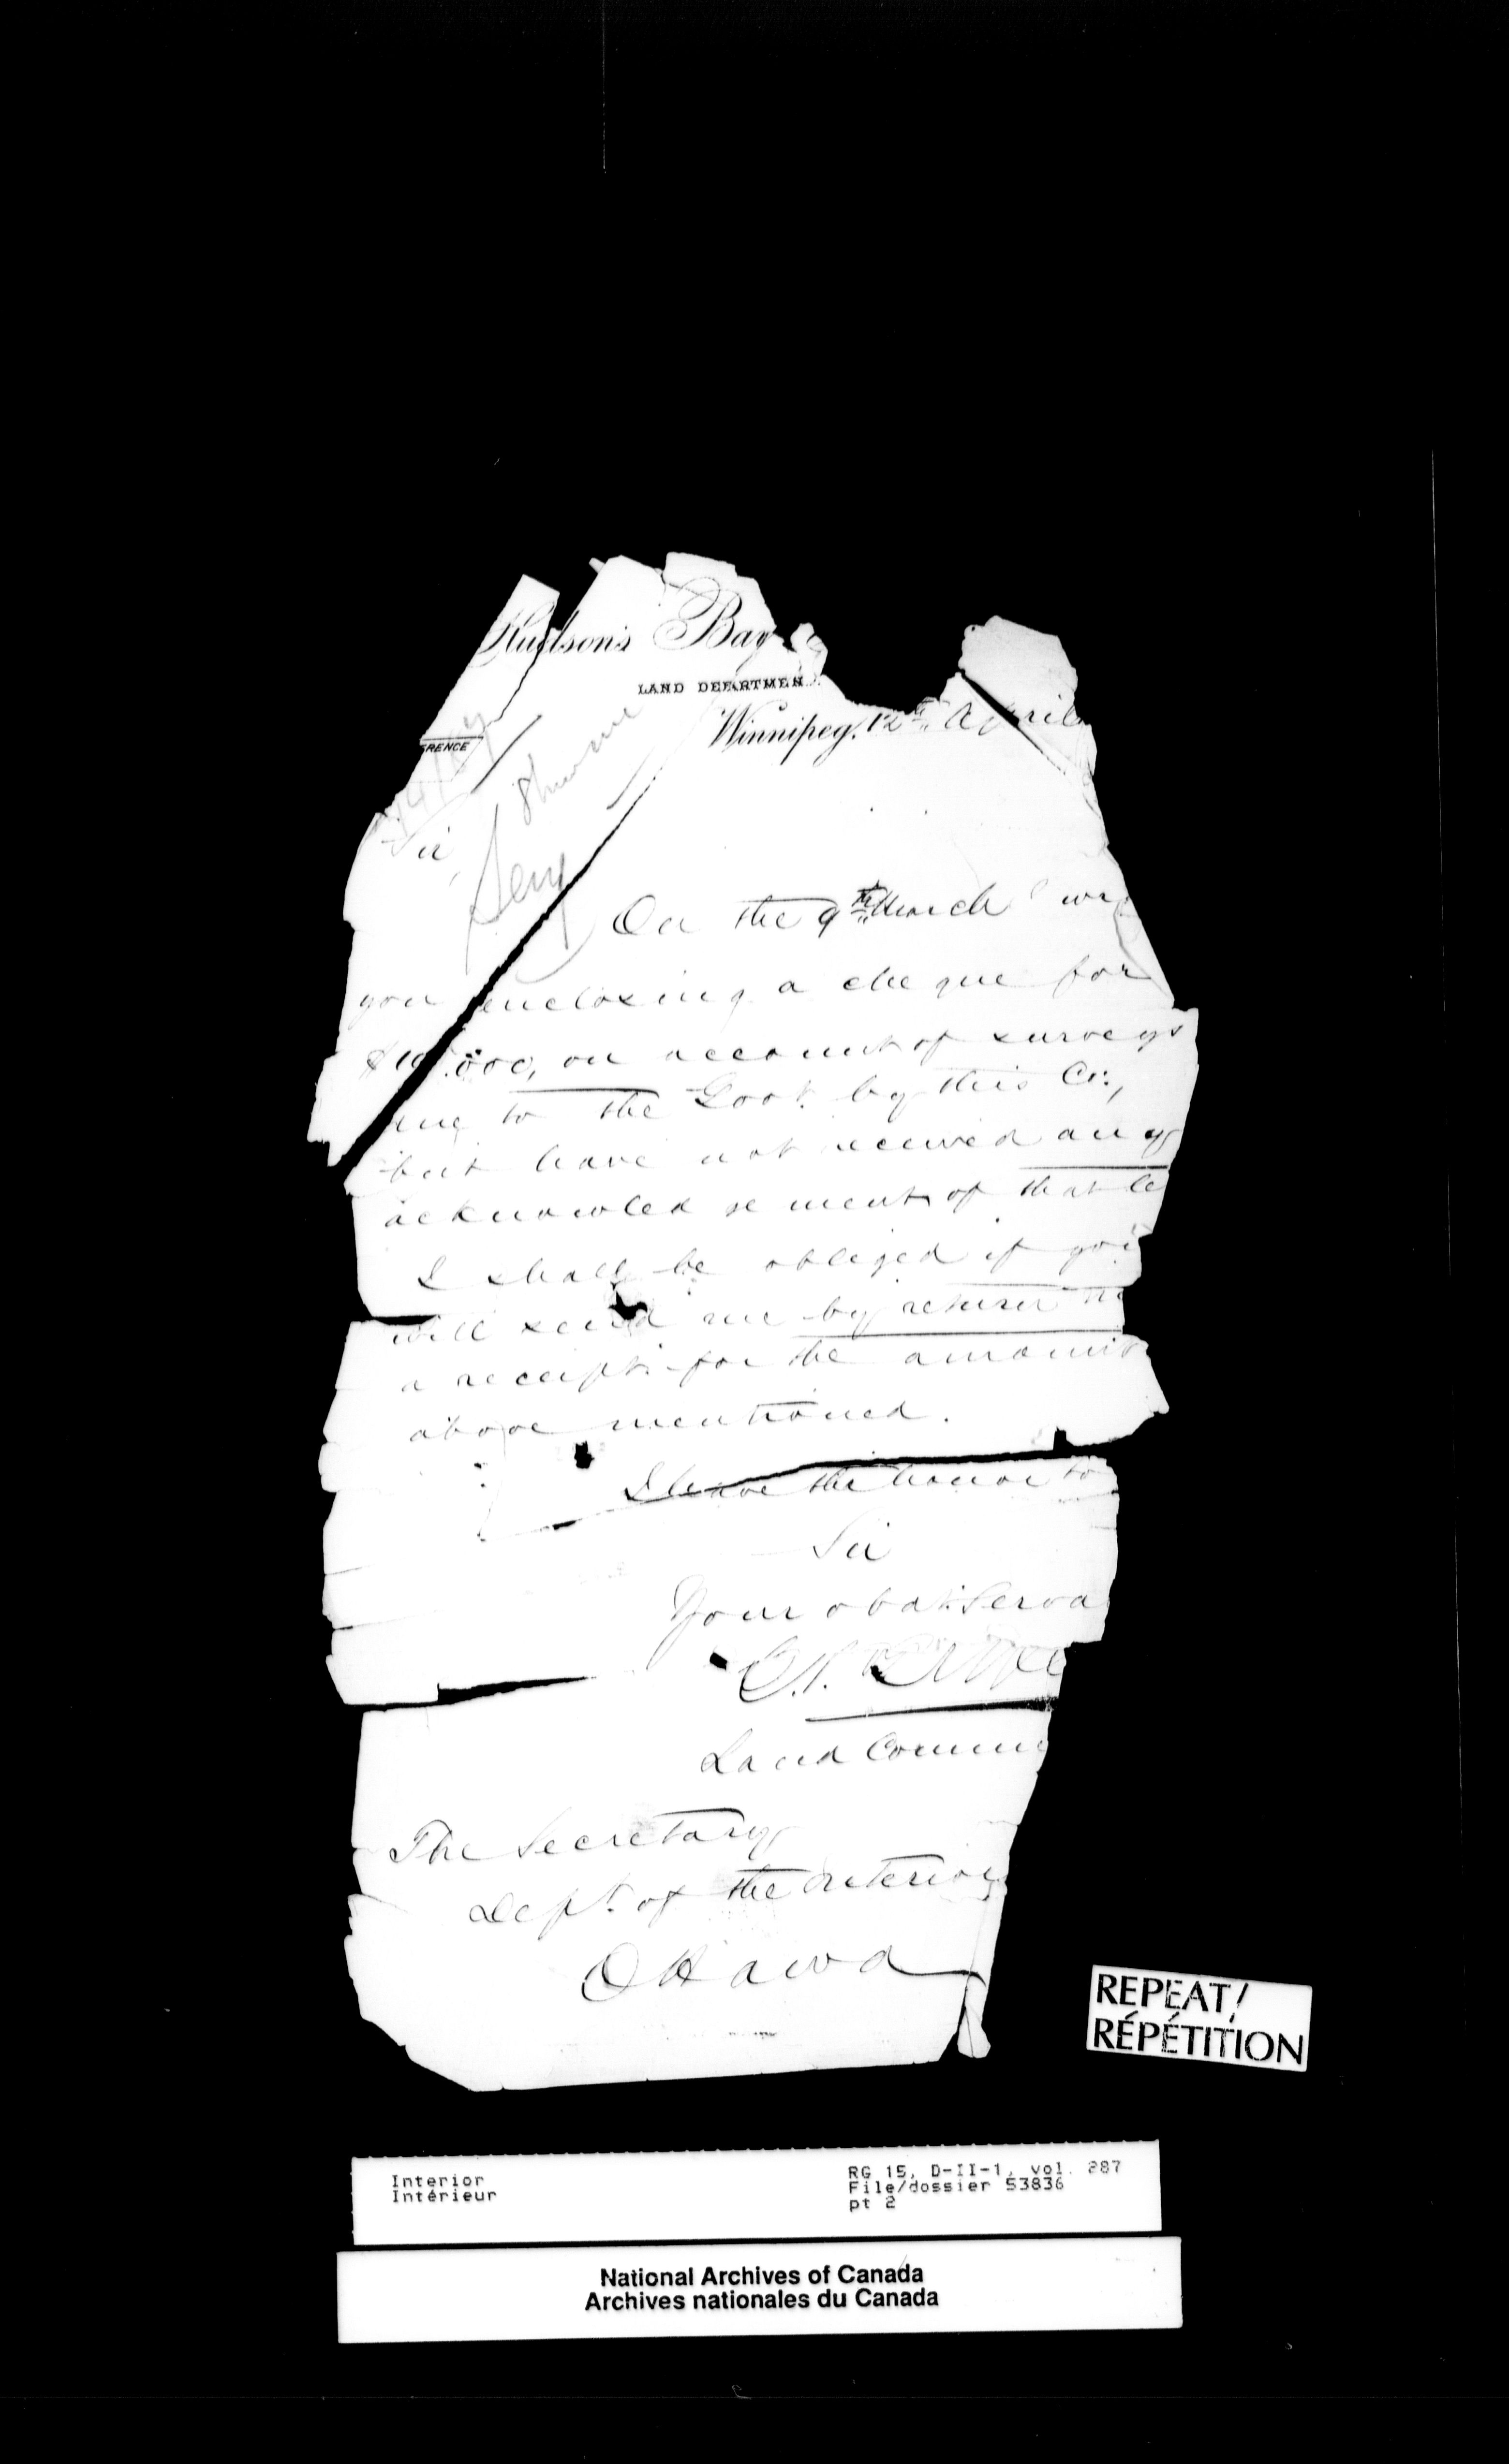 Hudson's Bay
LAND DEPARTMEN
Winnipeg, 12th April
ERENCE
Sir
On the 9th March I wr
you enclosing a cheque for
000, on account of surveys
due to the Govt. by this Co.,
but have not received any
acknowledgement of that le
I shall be obliged if you
will send me by return
a receipt for the amount
above mentioned.
I have the honor to
Sir
Your obdt. Serva
Land Commi
The Secretary
Dept. of the Interior
Ottawa
REPEAT/
RÉPÉTITION
Interior
Intérieur
RG 15, D-II-1, vol. 287
File/dossier 53836
pt 2
National Archives of Canada
Archives nationales du Canada